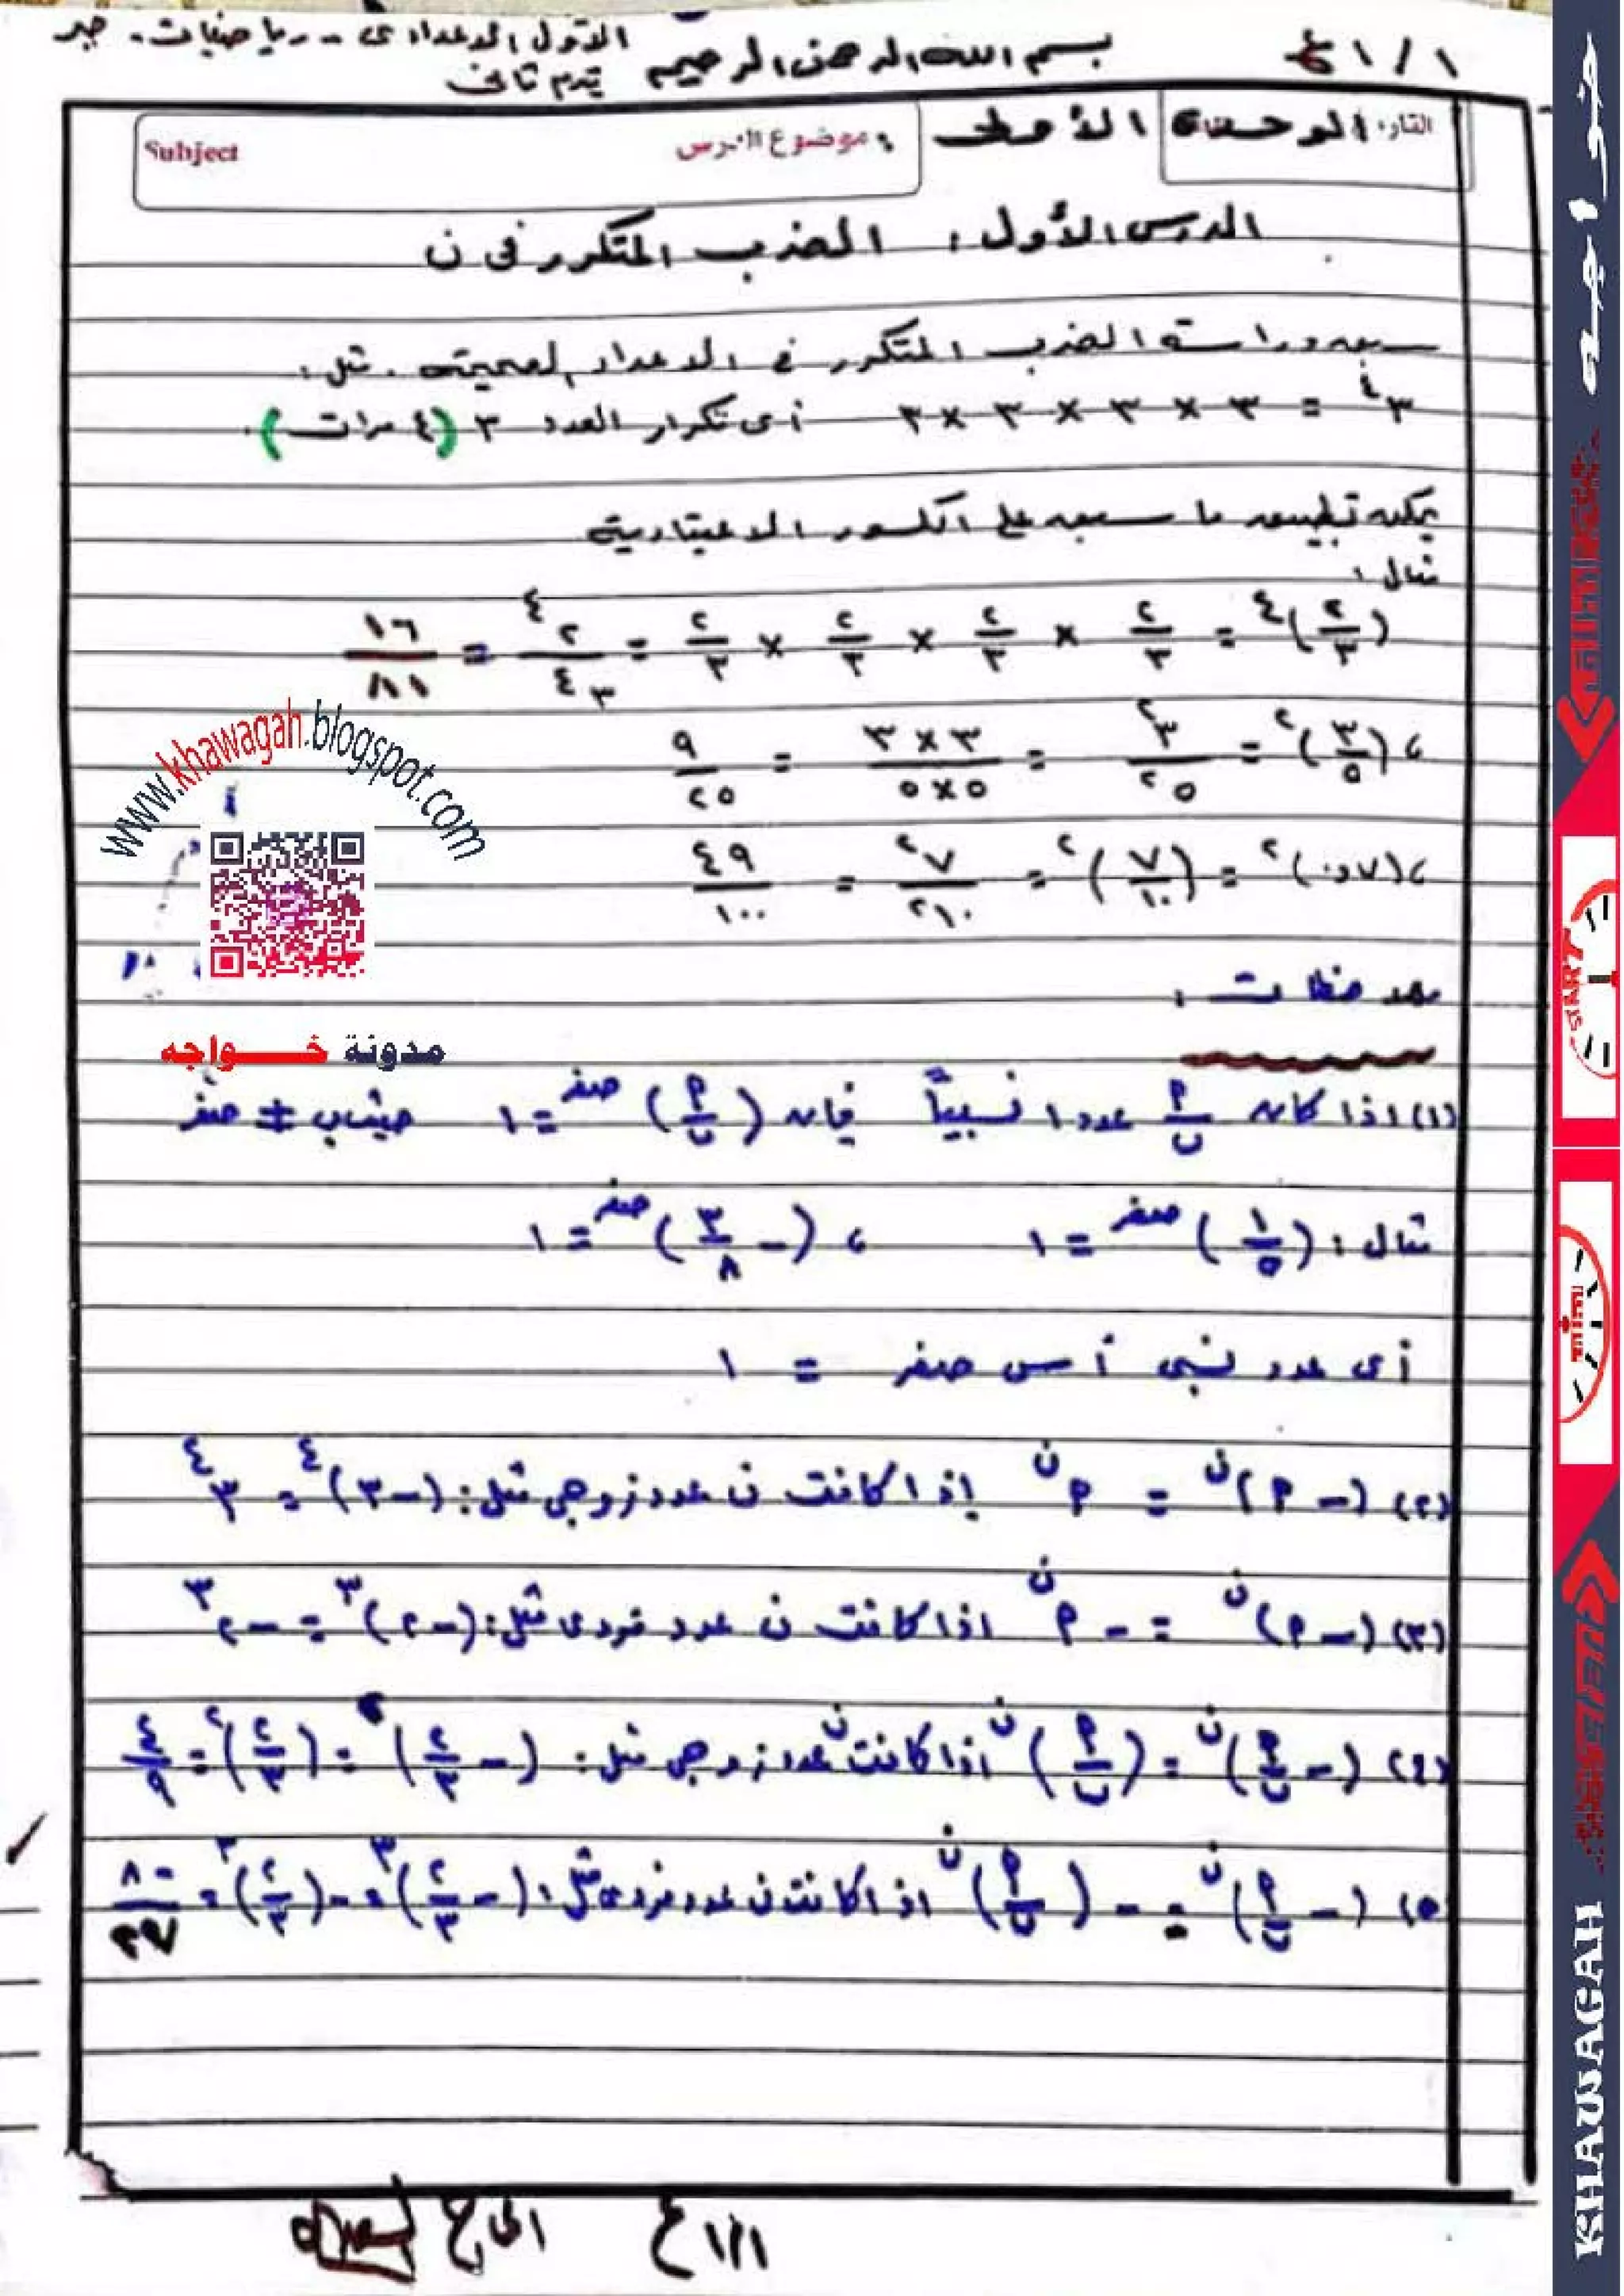 ١/١ ع
بسم الله الرحمن الرحيم
الأول الاعدادى - رياضيات - جبر
ترم ثانى
الوحدة الأولى
موضوع الدرس
Subject
الدرس الأول : الضرب المتكرر فى ن
سبق دراسة الضرب المتكرر فى الاعداد الصحيحة . مثل :
٣^٤ = ٣ × ٣ × ٣ × ٣ أى تكرار العدد ٣ (٤ مرات) .
يمكن تطبيق ما سبق على الكسور الاعتيادية
مثال :
(٢/٣)^٤ = ٢/٣ × ٢/٣ × ٢/٣ × ٢/٣ = ٢^٤/٣^٤ = ١٦/٨١
، (٣/٥)^٢ = ٣^٢/٥^٢ = ٣×٣/٥×٥ = ٩/٢٥
، (٠,٧)^٢ = (٧/١٠)^٢ = ٧^٢/١٠^٢ = ٤٩/١٠٠
www.khawagah.blogspot.com
ملاحظات :
مدونة خـــواجه
(١) اذا كان أ/ب عددا نسبياً فإن (أ/ب)^صفر = ١ حيث ب ≠ صفر
مثال : (١/٥)^صفر = ١ ، (- ٣/٨)^صفر = ١
أى عدد نسبى أس صفر = ١
(٢) (- أ)^ن = أ^ن إذا كانت ن عدد زوجى مثل : (-٣)^٤ = ٣^٤
(٣) (- أ)^ن = - أ^ن اذا كانت ن عدد فردى مثل : (-٢)^٣ = -٢^٣
(٤) (- أ/ب)^ن = (أ/ب)^ن اذا كانت ن عدد زوجى مثل : (- ٢/٣)^٢ = (٢/٣)^٢ = ٤/٩
(٥) (- أ/ب)^ن = - (أ/ب)^ن اذا كانت ن عدد فردى مثل : (- ٢/٣)^٣ = -(٢/٣)^٣ = -٨/٢٧
١/١ ع
خواجه
START
KHAWAGAH